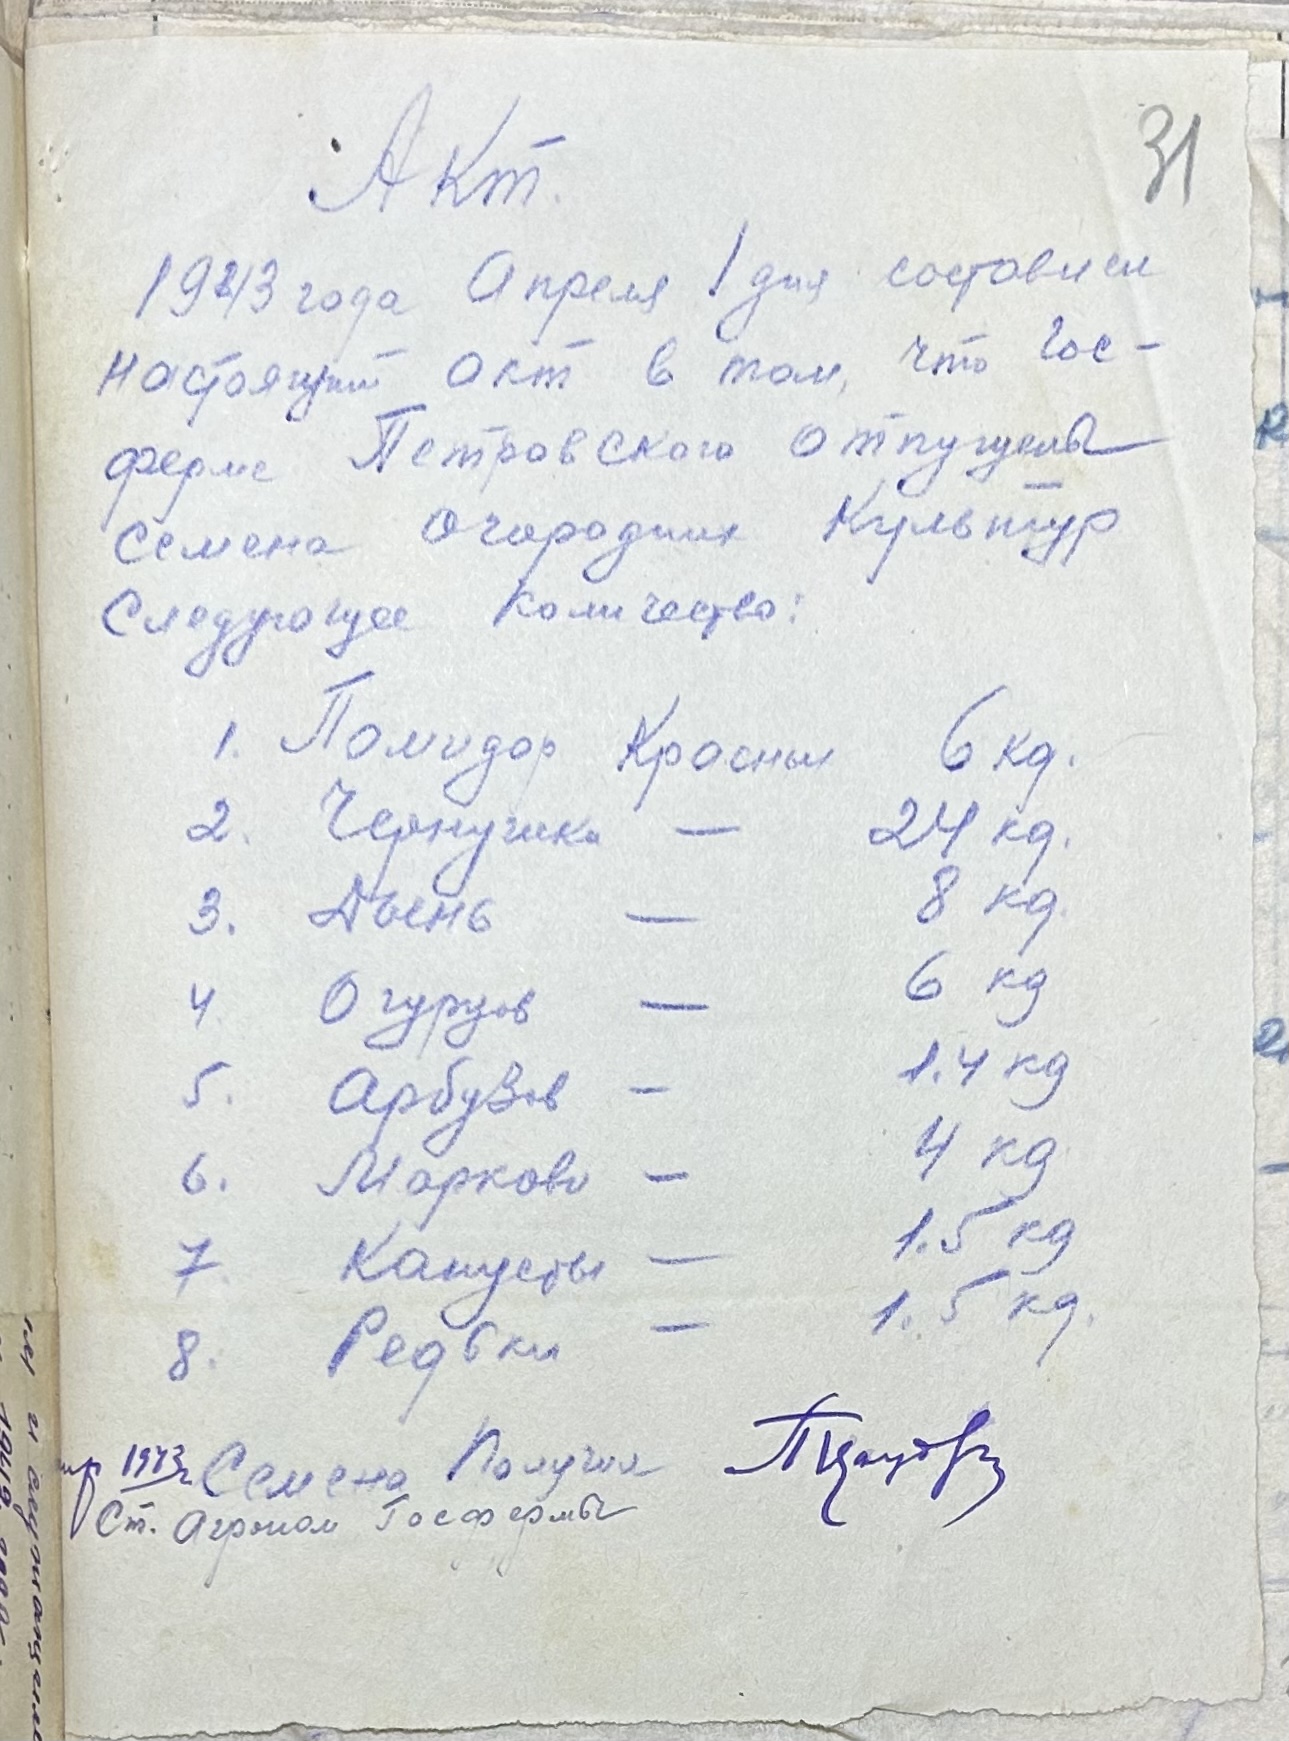 31
Акт.
1943 года Апреля 1 дня составлен
настоящий акт в том, что Гос-
ферме Петровского отпущены
семена огородних культур
следующее количество:
1. Помидор красных 6 кг.
2. Чернушка — 24 кг.
3. Дынь — 8 кг.
4. Огурцов — 6 кг
5. Арбузов — 1.4 кг
6. Моркови — 4 кг
7. Капусты — 1.5 кг
8. Редьки — 1.5 кг.
1943г. Семена Получил
Ст. Агроном Госфермы